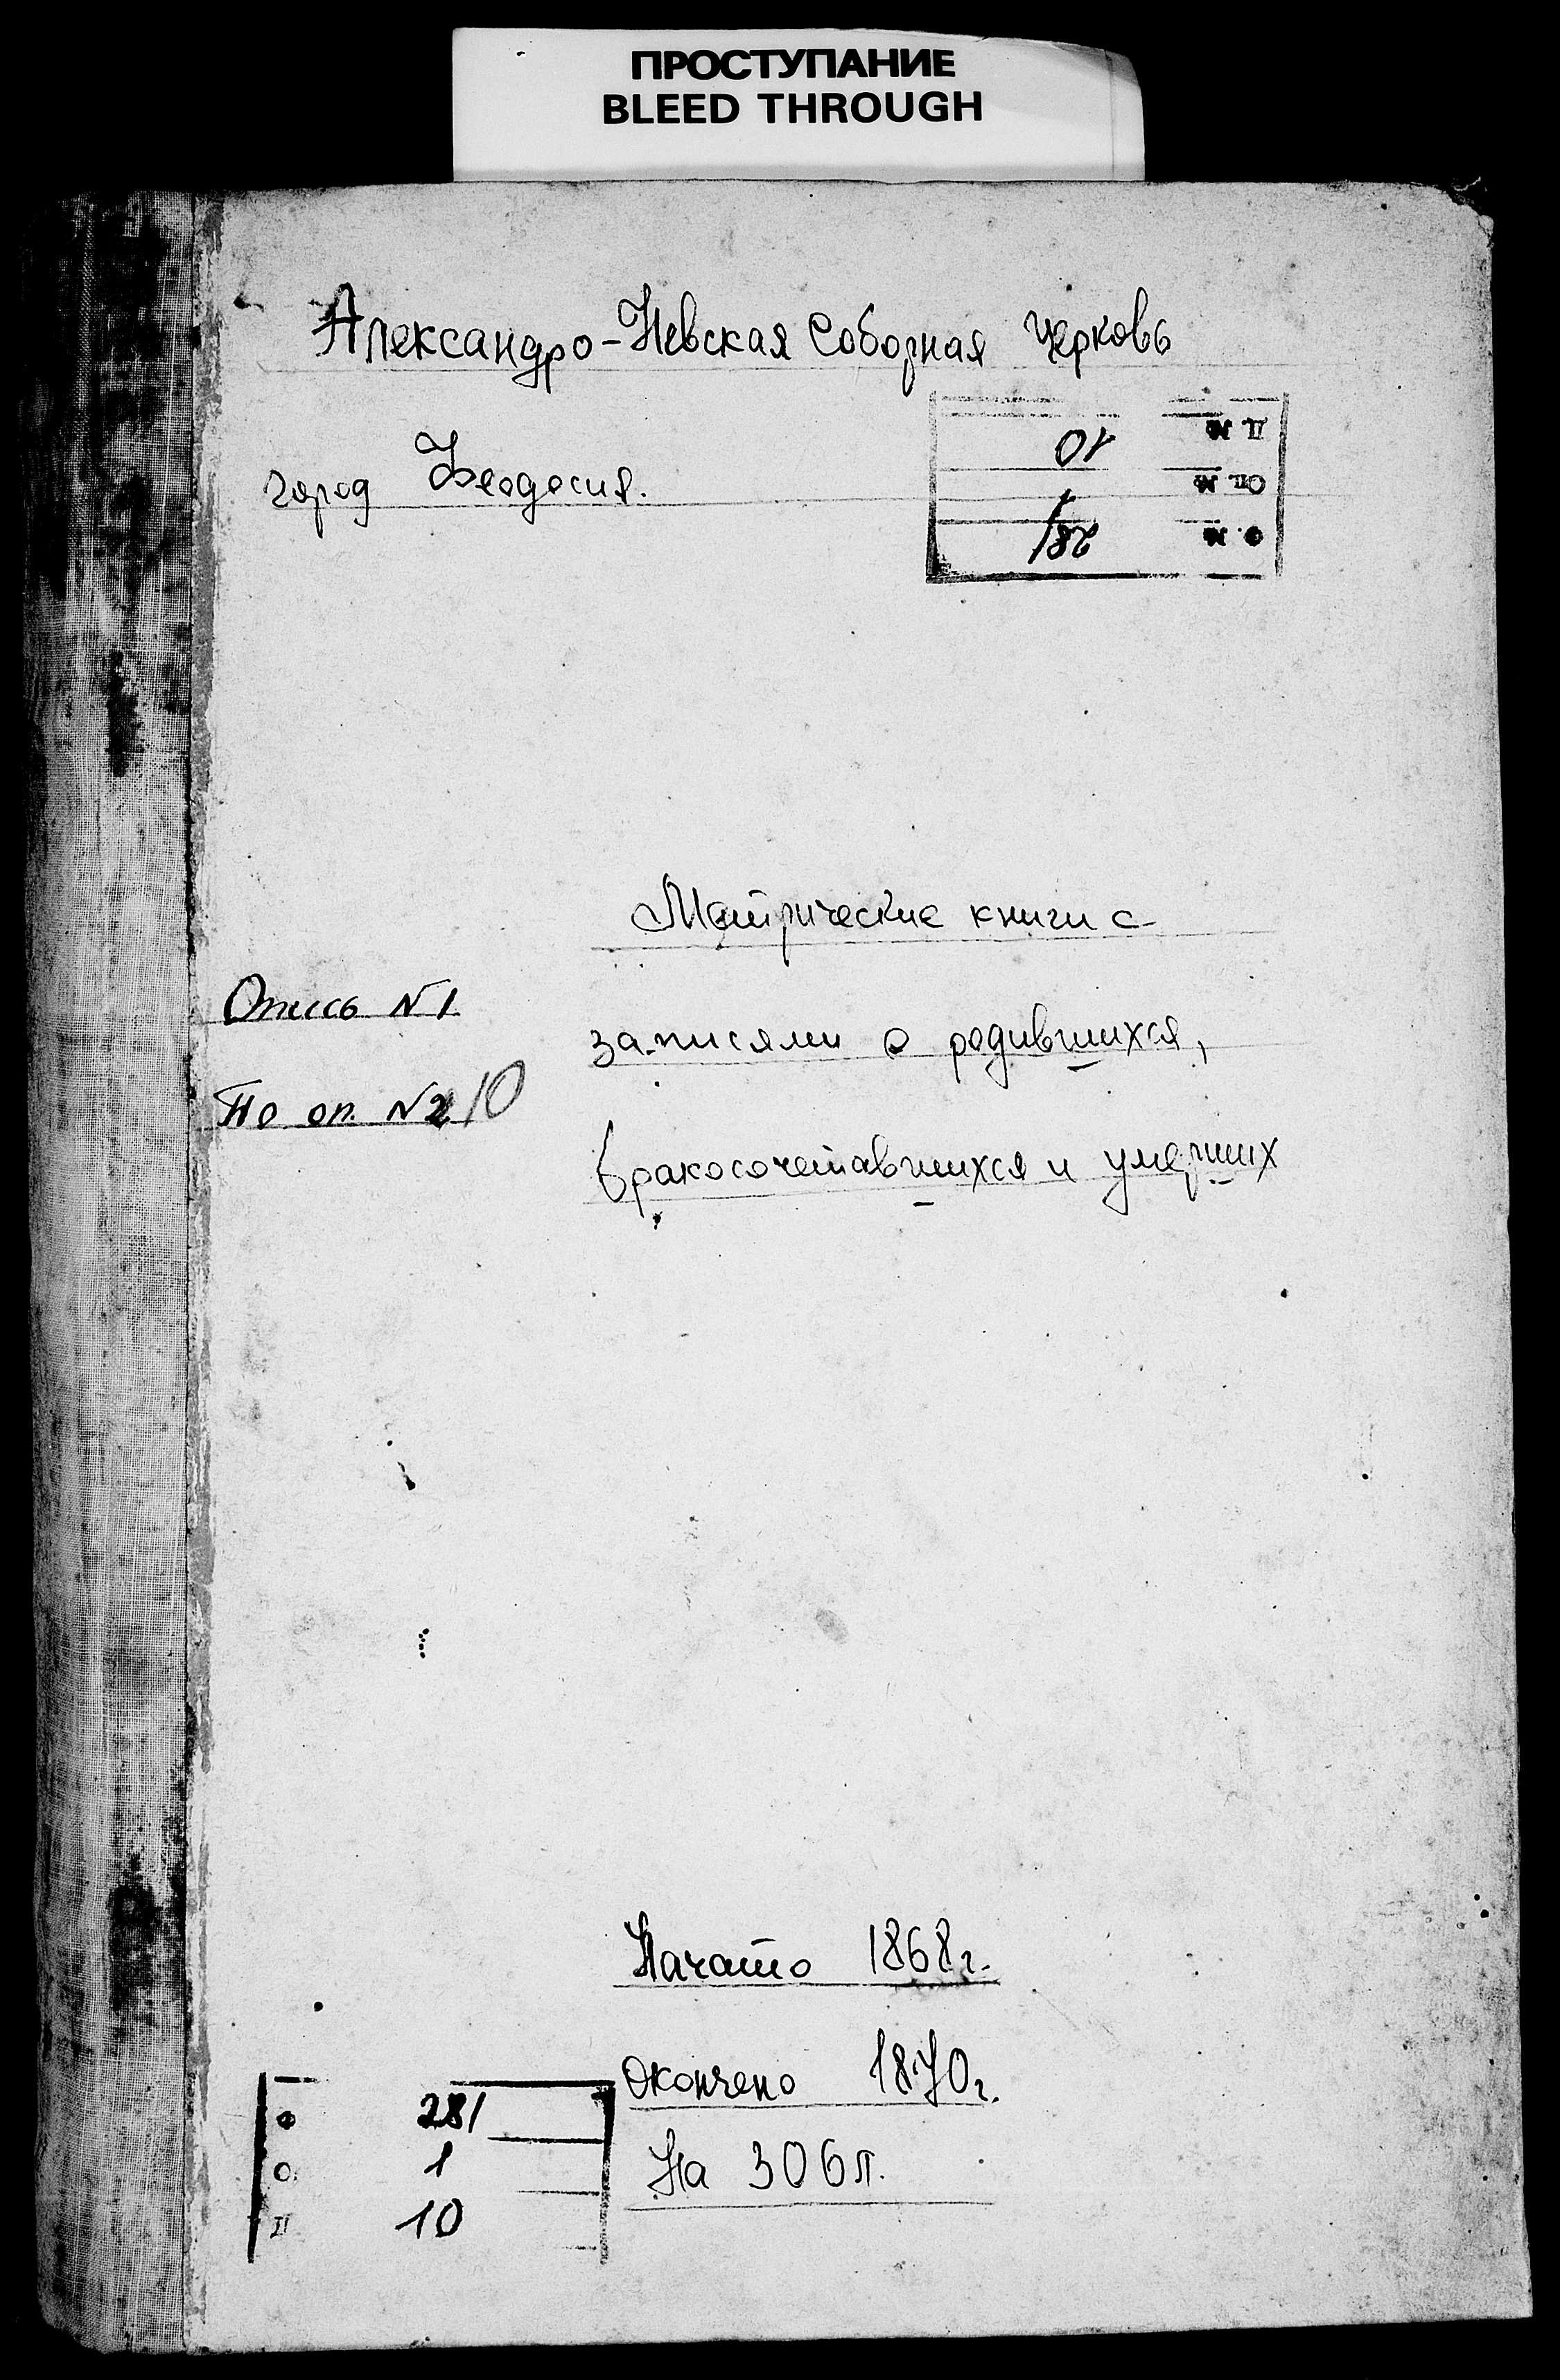 ПРОСТУПАНИЕ
BLEED THROUGH
Александро-Невская Соборная церковь
город Феодосия.
Д. № 10
Оп. № 1
Ф. № 281
Метрические книги с
Опись №1
записями о родившихся,
По оп. №2 10
бракосочетавшихся и умерших
Начато 1868 г.
Окончено 1870 г.
На 306 л.
Ф 281
О 1
Д 10